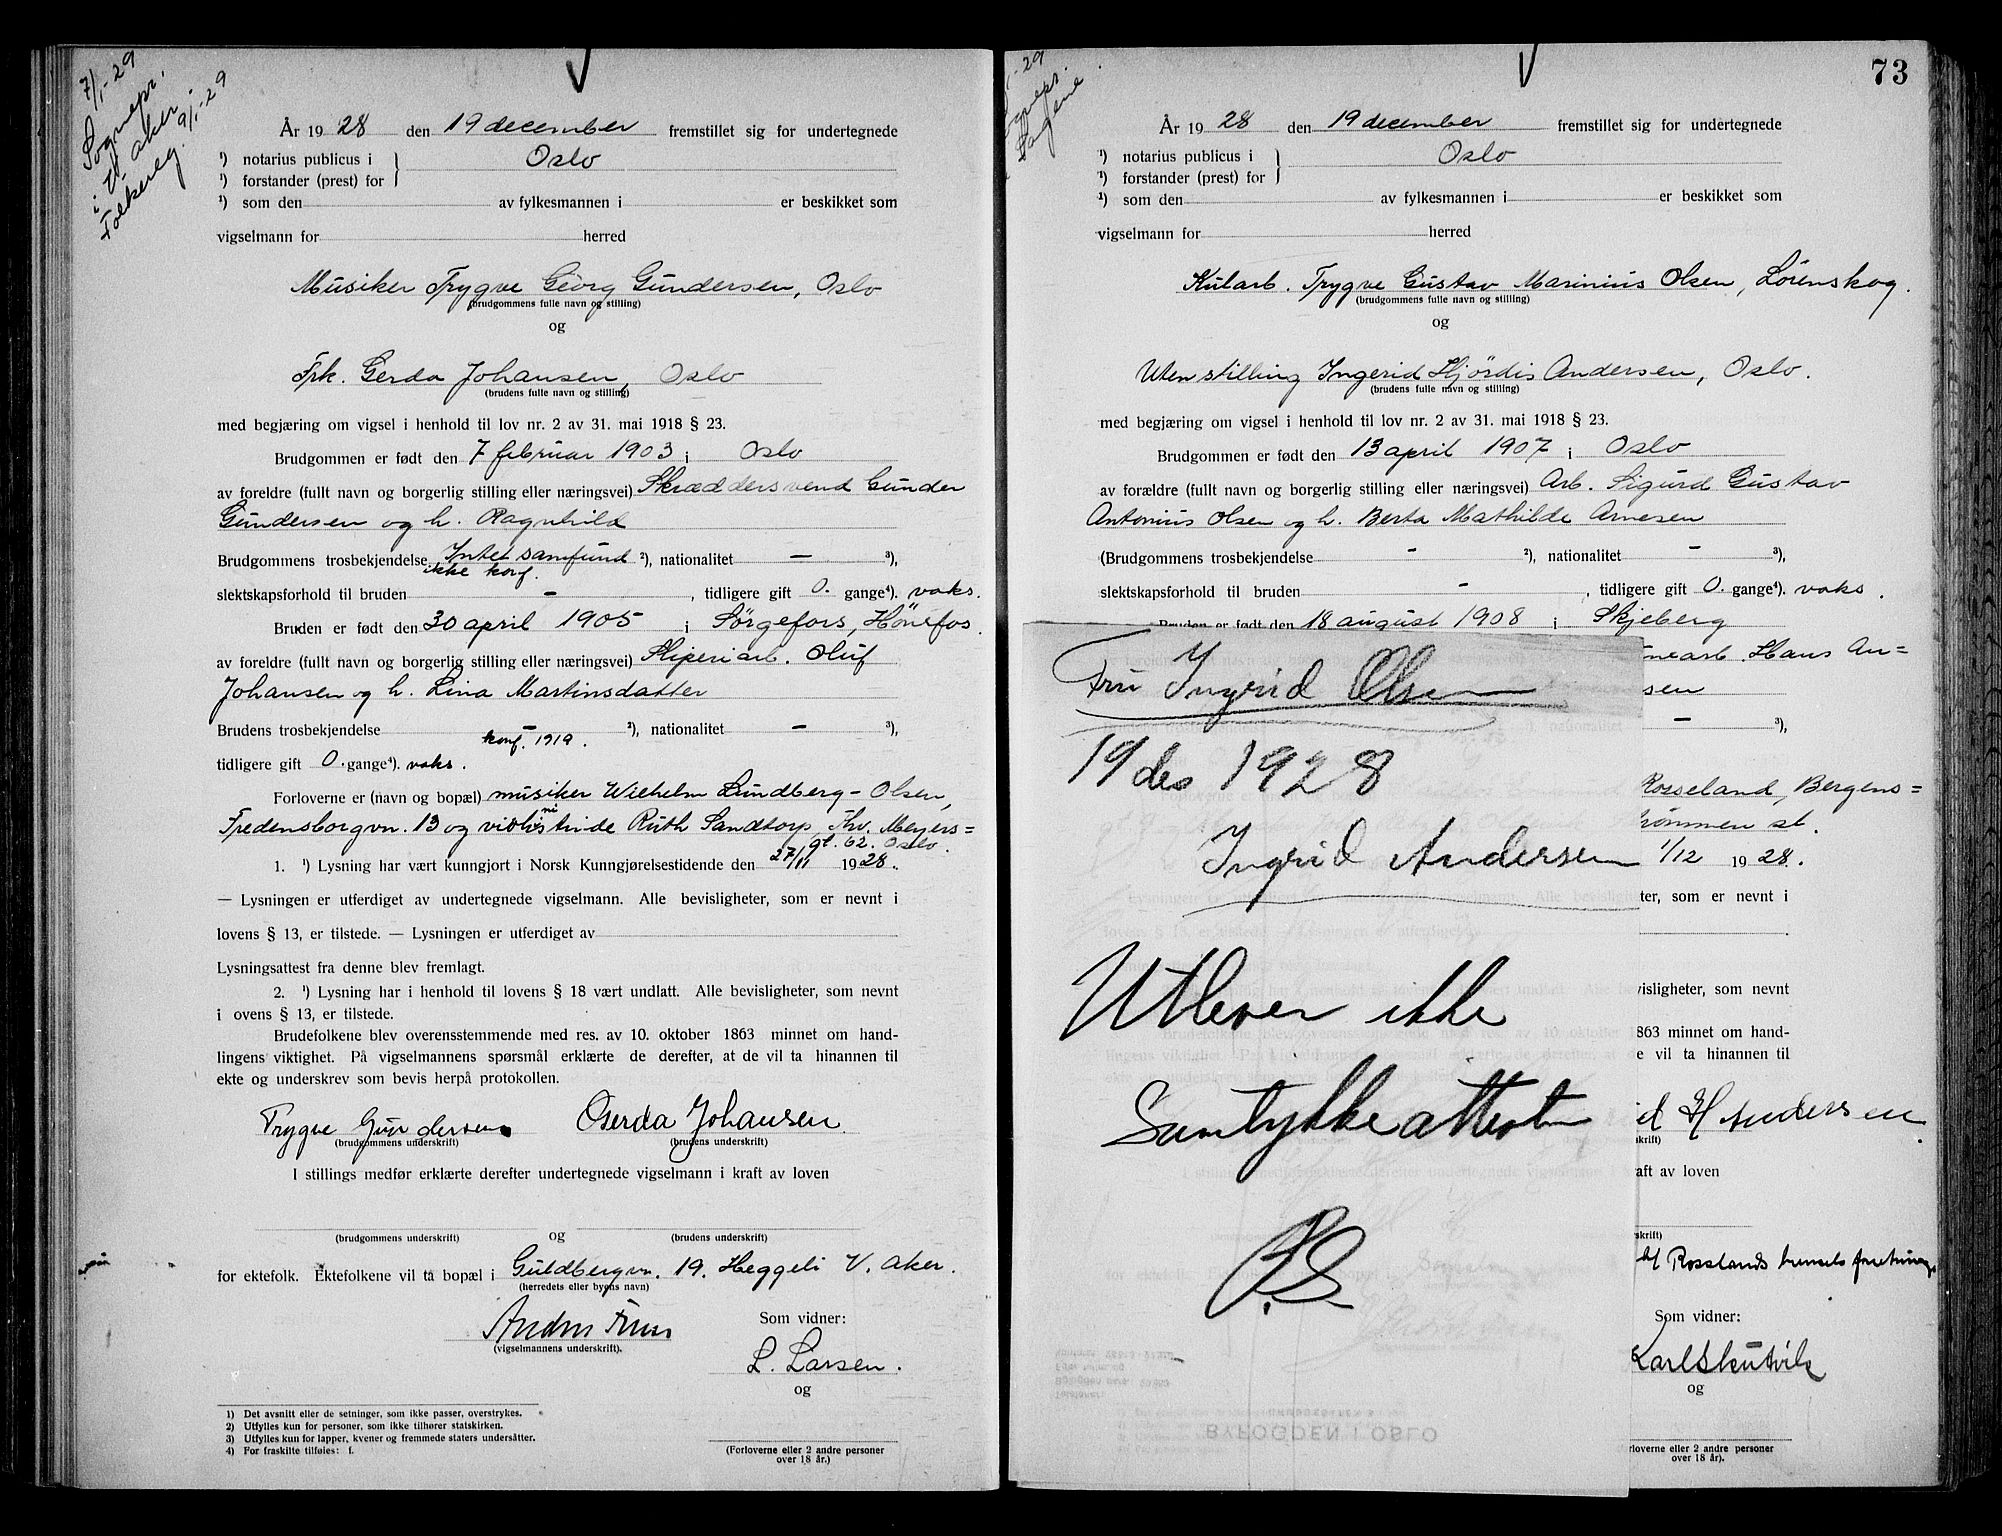 7/1-29
Sognepr.
i V. aker.
Folkereg. 9/1-29
År 1928 den 19 december fremstillet sig for undertegnede
¹) notarius publicus i } Oslo
¹) forstander (prest) for
¹) som den av fylkesmannen i er beskikket som
vigselmann for herred
Musiker Trygve Georg Gundersen, Oslo
(brudgommens fulle navn og stilling)
og
Frk. Gerda Johansen, Oslo
(brudens fulle navn og stilling)
med begjæring om vigsel i henhold til lov nr. 2 av 31. mai 1918 § 23.
Brudgommen er født den 7 februar 1903 i Oslo
av foreldre (fullt navn og borgerlig stilling eller næringsvei) Skræddersvend Gunder
Gundersen og h. Ragnhild
Brudgommens trosbekjendelse Intet samfund ²), nationalitet — ³),
ikke konf.
slektskapsforhold til bruden - , tidligere gift 0. gange⁴). voks.
Bruden er født den 30 april 1905 i Sørgefors, Hønefos.
av foreldre (fullt navn og borgerlig stilling eller næringsvei) Sliperiarb. Oluf
Johansen og h. Lina Martinsdatter
Brudens trosbekjendelse - ²), nationalitet — ³),
konf. 1919.
tidligere gift 0. gange⁴). voks.
Forloverne er (navn og bopæl) musiker Wilhelm Lundberg-Olsen,
Fredensborgvn. 13 og Ruth Sandtorp, Thv. Meyers=
gt. 62. Oslo.
1. ¹) Lysning har vært kunngjort i Norsk Kunngjørelsestidende den 27/11 1928.
— Lysningen er utferdiget av undertegnede vigselmann. Alle bevisligheter, som er nevnt i
lovens § 13, er tilstede. — Lysningen er utferdiget av
Lysningsattest fra denne blev fremlagt.
2. ¹) Lysning har i henhold til lovens § 18 vært undlatt. Alle bevisligheter, som nevnt
i ovens § 13, er tilstede.
Brudefolkene blev overensstemmende med res. av 10. oktober 1863 minnet om hand-
lingens viktighet. På vigselmannens spørsmål erklærte de derefter, at de vil ta hinannen til
ekte og underskrev som bevis herpå protokollen.
Trygve Gundersen Gerda Johansen
(brudgommens underskrift) (brudens underskrift)
I stillings medfør erklærte derefter undertegnede vigselmann i kraft av loven
og
(brudgommens underskrift) (brudens underskrift)
for ektefolk. Ektefolkene vil ta bopæl i Guldbergvn. 19. Heggeli V. Aker.
(herredets eller byens navn)
Som vidner:
(vigselmannens underskrift).
L. Larsen.
og
1) Det avsnitt eller de setninger, som ikke passer, overstrykes.
2) Utfylles kun for personer, som ikke tilhører statskirken.
3) Utfylles kun for lapper, kvener og fremmede staters undersåtter.
4) For fraskilte tilføies: f.
(Forloverne eller 2 andre personer
over 18 år.)
73
-29
Sagene
År 1928 den 19 december fremstillet sig for undertegnede
¹) notarius publicus i } Oslo
¹) forstander (prest) for
¹) som den av fylkesmannen i er beskikket som
vigselmann for herred
Kularb. Trygve Gustav Marinius Olsen, Lørenskog.
(brudgommens fulle navn og stilling)
og
Uten stilling Ingerid Hjørdis Andersen, Oslo.
(brudens fulle navn og stilling)
med begjæring om vigsel i henhold til lov nr. 2 av 31. mai 1918 § 23.
Brudgommen er født den 13 april 1907 i Oslo
av forældre (fullt navn og borgerlig stilling eller næringsvei) Arb. Sigurd Gustav
Antonius Olsen og h. Berta Mathilde Arnesen
(Brudgommens trosbekjendelse - ²), nationalitet - ³),
slektskapsforhold til bruden - , tidligere gift 0. gange⁴). voks.
Bruden er født den 18 august 1908 i Skjeberg
nearb. Hans An=
sen
— ³),
Rosseland, Bergens=
trømmen st.
1/12 1928.
ter, som er nevnt i
visligheter, som nevnt
1863 minnet om hand-
e vil ta hinannen til
id H Andersen
krift)
aft av loven
krift)
Rosslands
Som vidner:
Karl Skutvik
og
(Forloverne eller 2 andre personer
over 18 år).
Fru Ingrid Olsen
19 des 1928
Ingrid Andersen
Utlever ikke
Samtykkeattesten
BYFOGDEN I OSLO